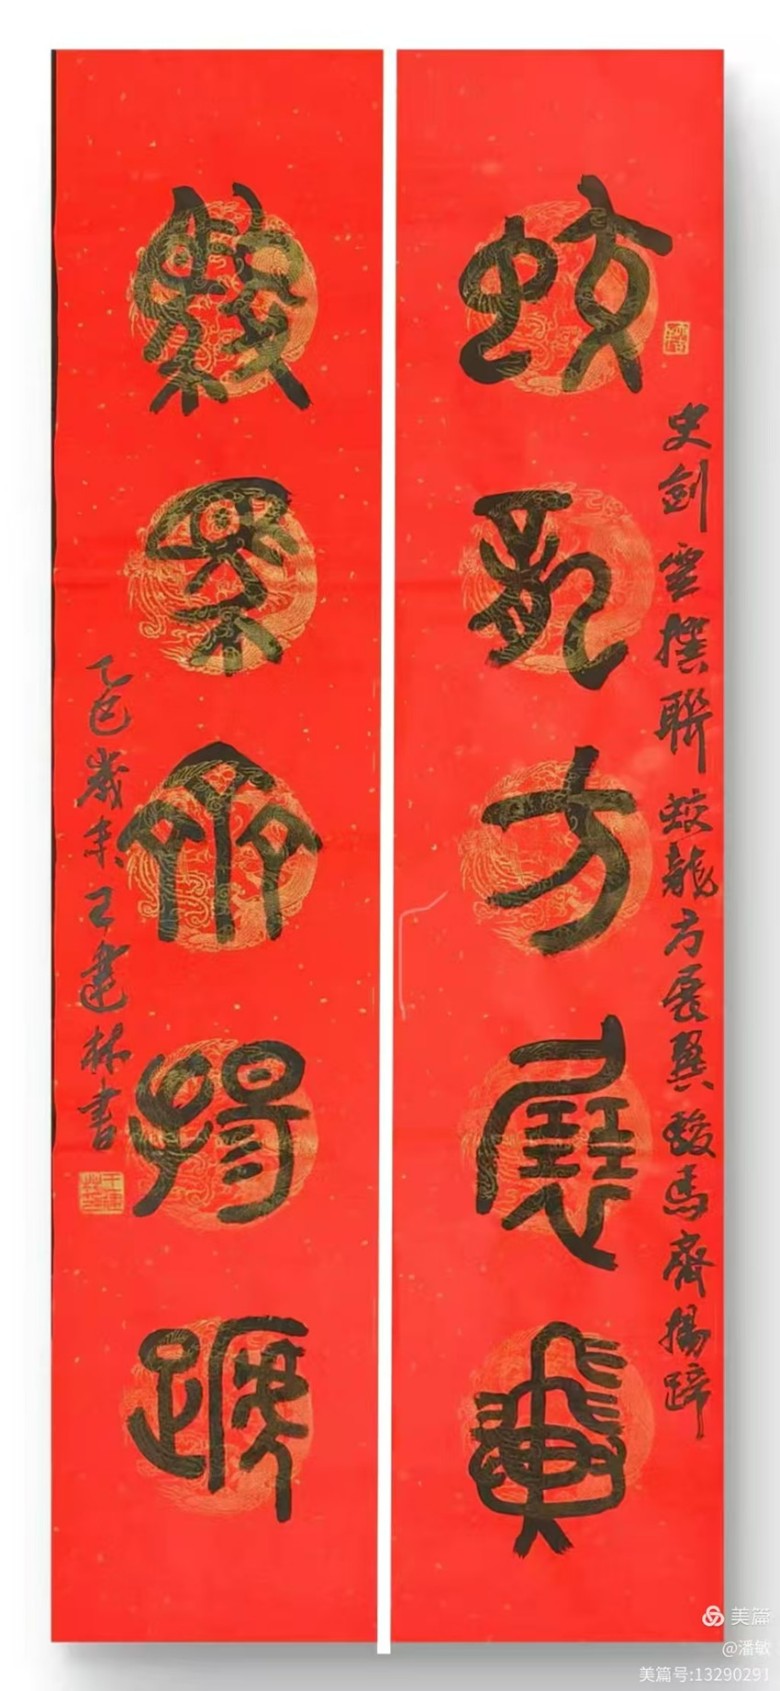 蛟龍方展翼
史劍雲撰聯蛟龍方展翼駿馬齊揚蹄
駿馬齊揚蹄
乙巳歲末王建林書
美篇
@潘敏
美篇号:13290291